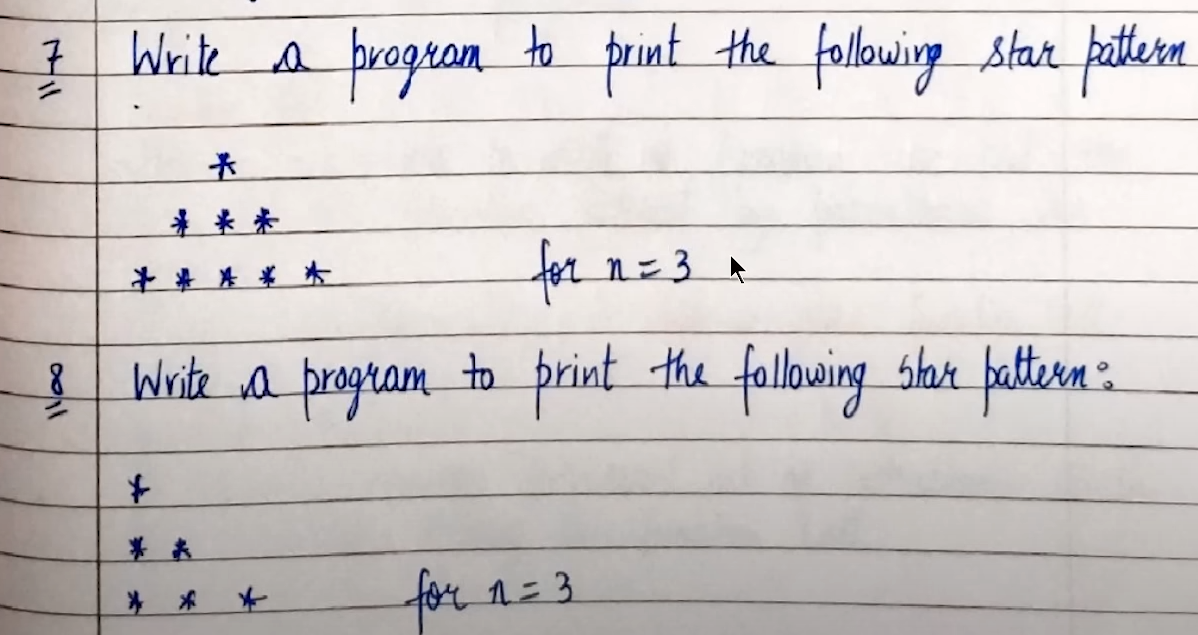 7 Write a program to print the following star pattern
*
* * *
* * * * * for n = 3
8 Write a program to print the following star pattern:
*
* *
* * * for n = 3